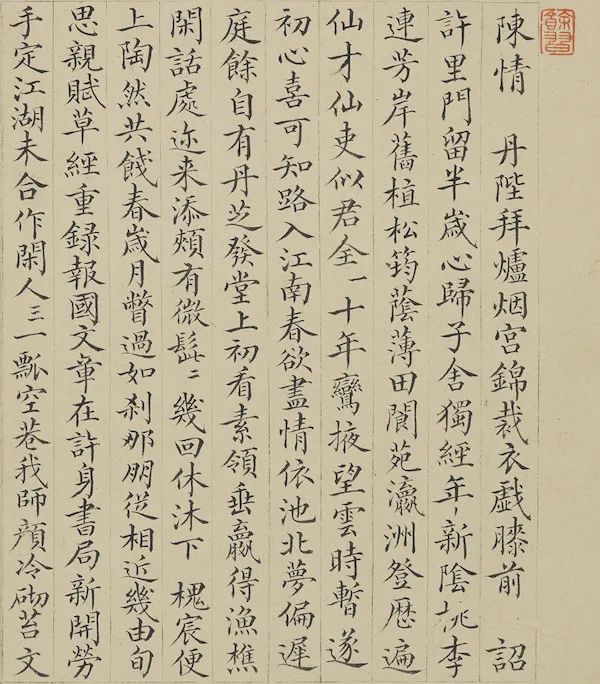 陳情　丹陛拜爐烟宫錦裁衣戯膝前　詔
許里門留半歲心歸子舍獨經年新陰桃李
連芳岸舊植松筠蔭薄田閬苑瀛洲登歴遍
仙才仙吏似君全一十年鸞掖望雲時暫遂
初心喜可知路入江南春欲盡情依池北夢偏遲
庭餘自有丹芝發堂上初看素領垂羸得漁樵
閑話處迩来添頰有微髭二幾回休沐下　槐宸便
上陶然共餞春歲月瞥過如刹那朋從相近幾由旬
思親賦草經重録報國文章在許身書局新開勞
手定江湖未合作閑人三一瓢空巷我師顔冷砌苔文